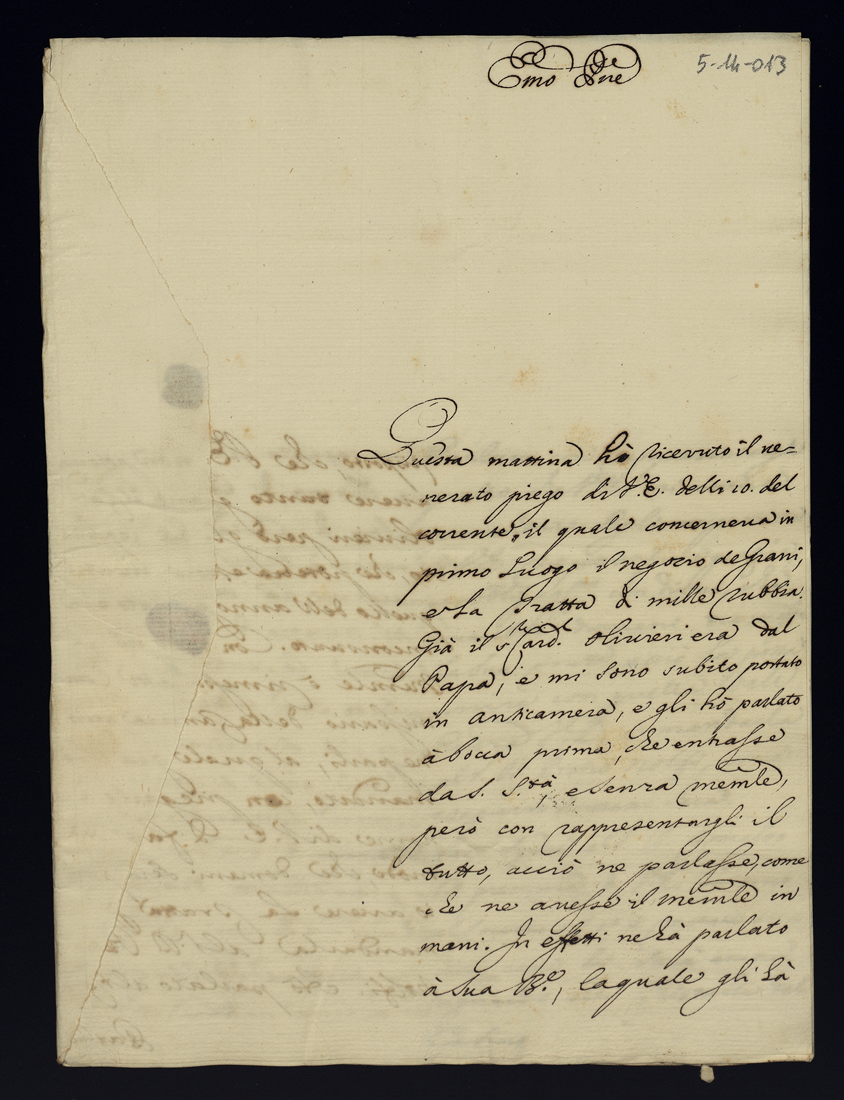 Emo Pne
5-14-013
Questa mattina hò ricevuto il ve=
nerato piego di V.E. delli 10. del
corrente, il quale concerneva in
primo luogo il negozio de Grani,
e la Tratta di mille rubbia.
Già il s.r Card.l Olivieri era dal
Papa, e mi sono subito portato
in anticamera, e gli hò parlato
à bocca prima, che entrasse
da S. S.tà e senza memle,
però con rappresentargli il
tutto, acciò ne parlasse, come
che ne avesse il memle in
mani. In effetti ne hà parlato
à Sua B.e, la quale gli hà